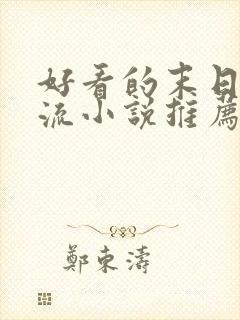 好看的末日
流小說推薦
鄭東濤